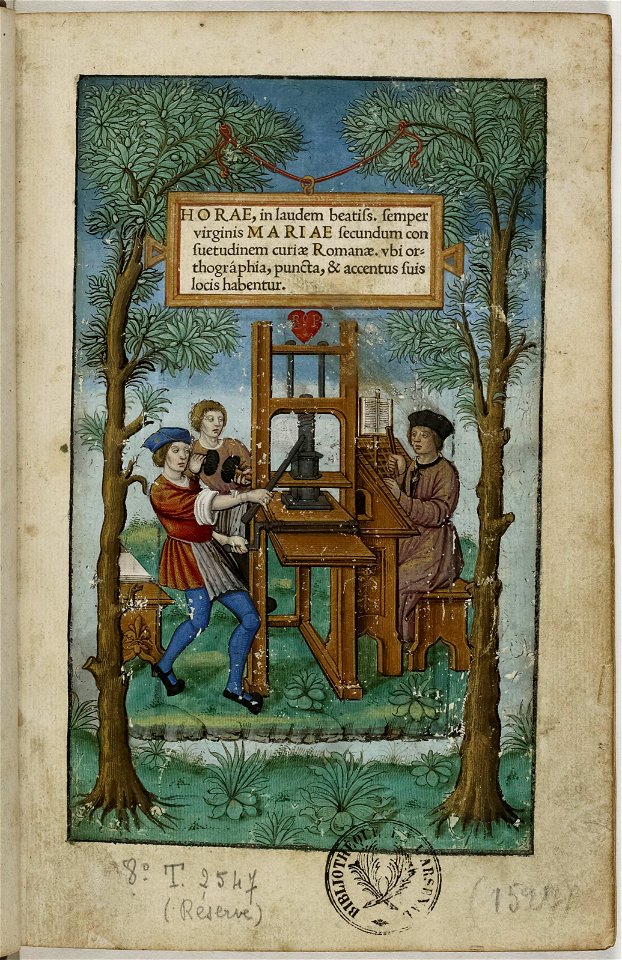 HORAE, in laudem beatiſſ. ſemper
virginis MARIAE ſecundum con
ſuetudinem curiæ Romanæ. vbi or-
thográphia, puncta, & accentus ſuis
locis habentur.
8° T. 2547
(Réserve)
BIBLIOTHEQUE DE L'ARSENAL